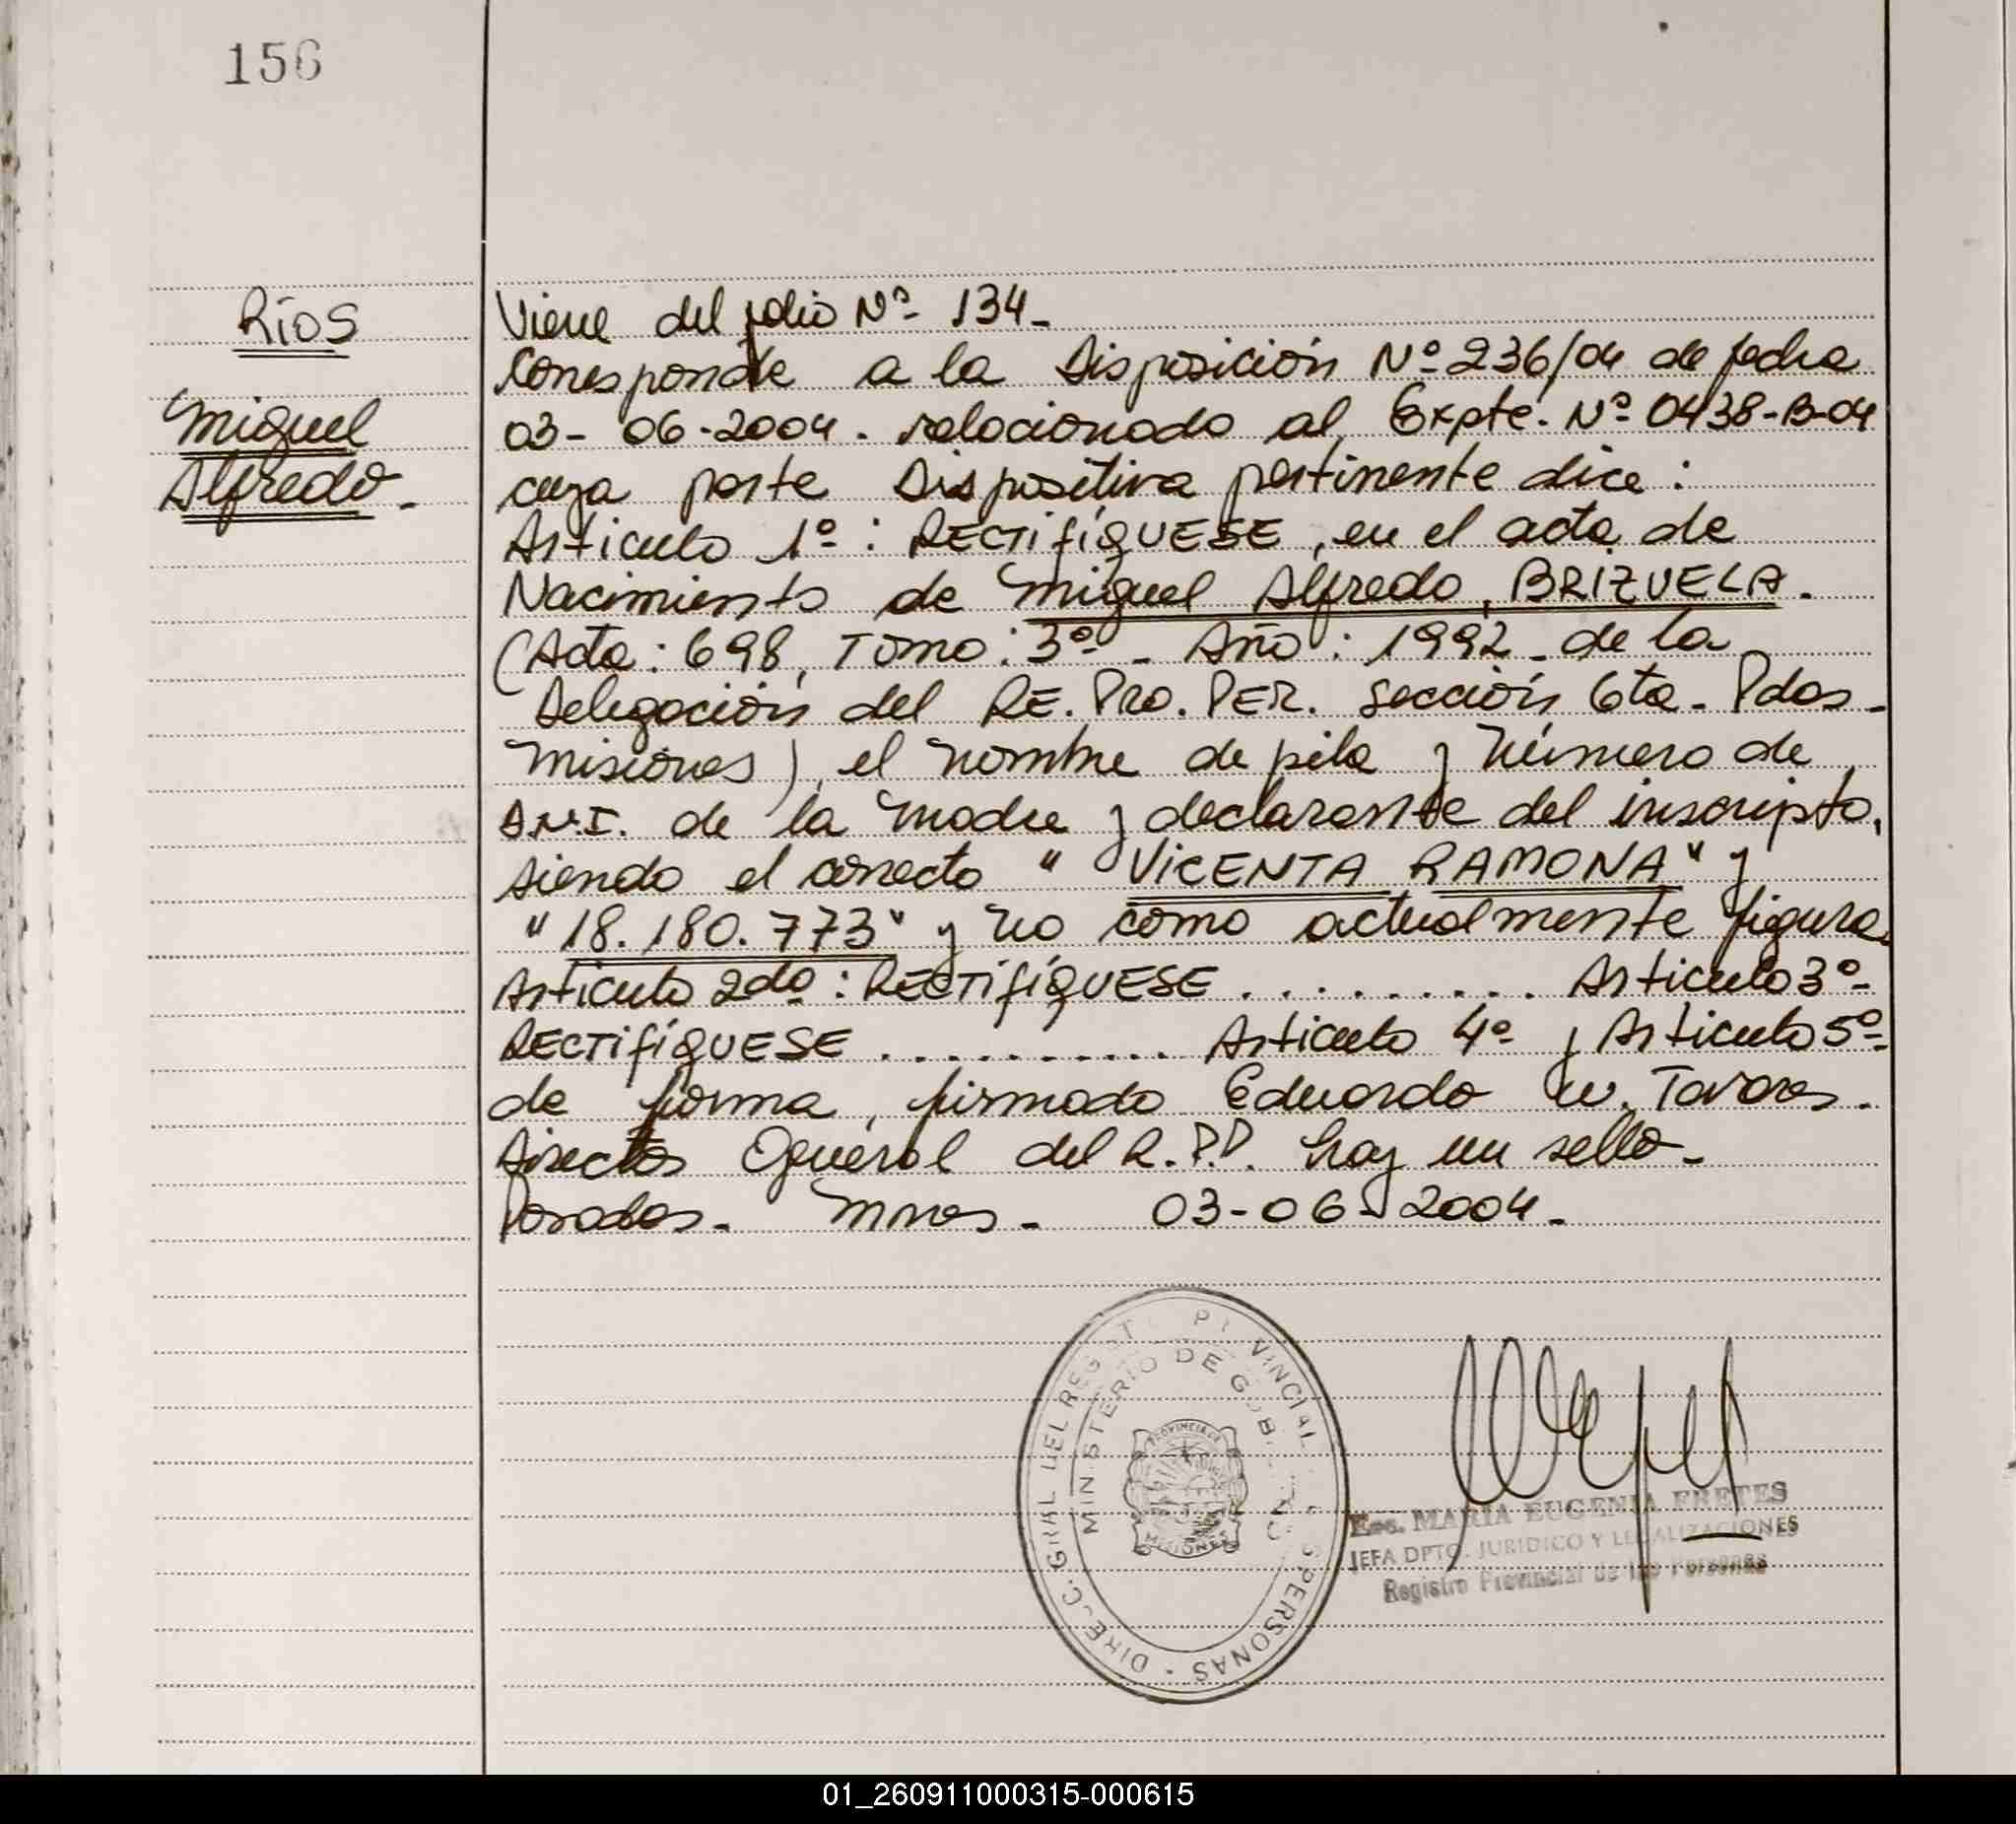 156
Ríos
Miguel
Alfredo.-
Viene del folio Nº 134-
Corresponde a la Disposición Nº 236/04 de fecha
03-06-2004. relacionado al Expte. Nº 0438-B-04
cuya parte Dispositiva pertinente dice:
Articulo 1º: RECTIFÍQUESE, en el acta de
Nacimiento de Miguel Alfredo, BRIZUELA.
(Acta: 698, Tomo: 3º- Año: 1992- de la
Delegación del RE. PRO. PER. sección 6ta- Pdas-
Misiones), el nombre de pila y número de
D.N.I. de la madre y declarante del inscripto,
siendo el correcto " VICENTA RAMONA" y
"18.180.773" y no como actualmente figura.
Articulo 2do: RECTIFÍQUESE ......... Articulo 3º-
RECTIFÍQUESE .......... Articulo 4º y Articulo 5º-
de forma, firmado Eduardo W. Tavares.
Director General del R.P.P. hay un sello-
Posadas- Mnes- 03-06-2004-
DIRECC. GRAL DEL REGISTRO PROVINCIAL DE LAS PERSONAS
MINISTERIO DE GOBIERNO
PROVINCIA DE
MISIONES
Esc. MARIA EUGENIA FRETES
JEFA DPTO. JURIDICO Y LEGALIZACIONES
Registro Provincial de las Personas
01_260911000315-000615